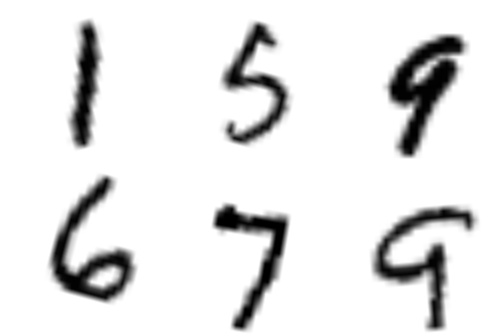 1 5 9
6 7 9